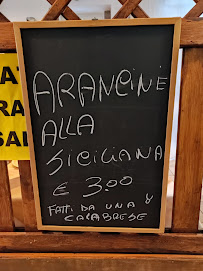 ARANCINE
ALLA
SICILIANA
€ 3.00
FATTI DA UNA
CALABRESE